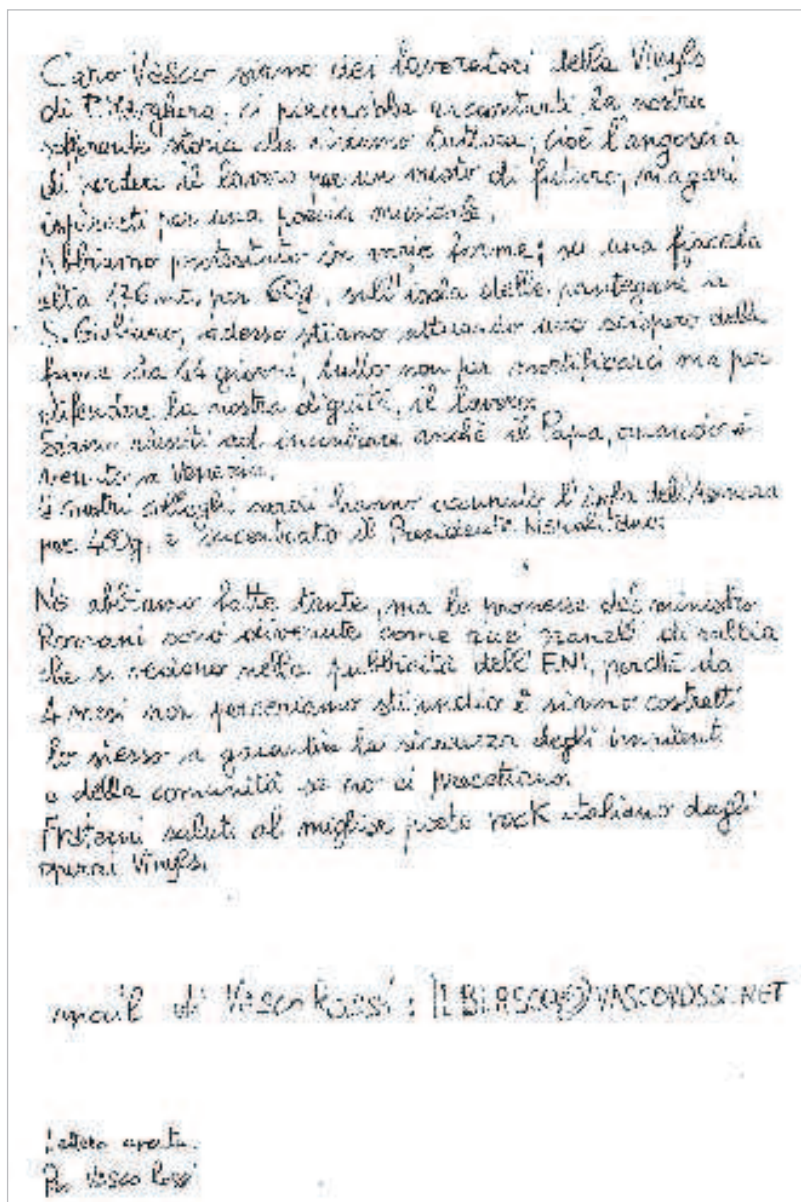 Caro Vasco siamo dei lavoratori della Vinyls
di P. Marghera, ci piacerebbe raccontarti la nostra
sofferente storia che viviamo tuttora, cioè l'angoscia
di perdere il lavoro per un misto di futuro, magari
ispirarti per una poesia musicale.
Abbiamo protestato in varie forme; su una fiaccola
alta 176 mt. per 60g, sull'isola delle pantegane a
S. Giuliano, adesso stiamo attuando uno sciopero della
fame da giorni, tutto non per mortificarci ma per
difendere la nostra dignità, il lavoro.
Siamo riusciti ad incontrare anche il Papa, quando è
venuto a Venezia.
I nostri colleghi sardi hanno occupato l'isola dell'Asinara
per 400g. e incontrato il Presidente Napolitano.
Ne abbiamo fatte tante, ma le promesse del ministro
Romani sono divenute come quei granelli di sabbia
che si vedono nella pubblicità dell'ENI, perché da
4 mesi non percepiamo stipendio e siamo costretti
lo stesso a garantire la sicurezza degli impianti
e della comunità se no ci precettano.
Fraterni saluti al miglior poeta rock italiano dagli
operai Vinyls.
mail di Vasco Rossi: ILBLASCO@VASCOROSSI.NET
Lettera aperta
Per Vasco Rossi